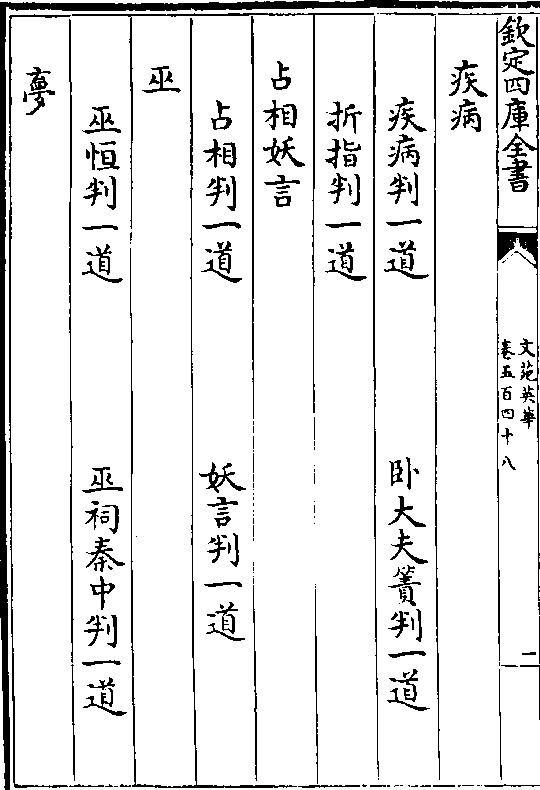 欽定四庫全書
文苑英華
卷五百四十八
二
疾病
疾病判一道
卧大夫簀判一道
折指判一道
占相妖言
占相判一道
妖言判一道
巫
巫恒判一道
巫祠秦中判一道
夢